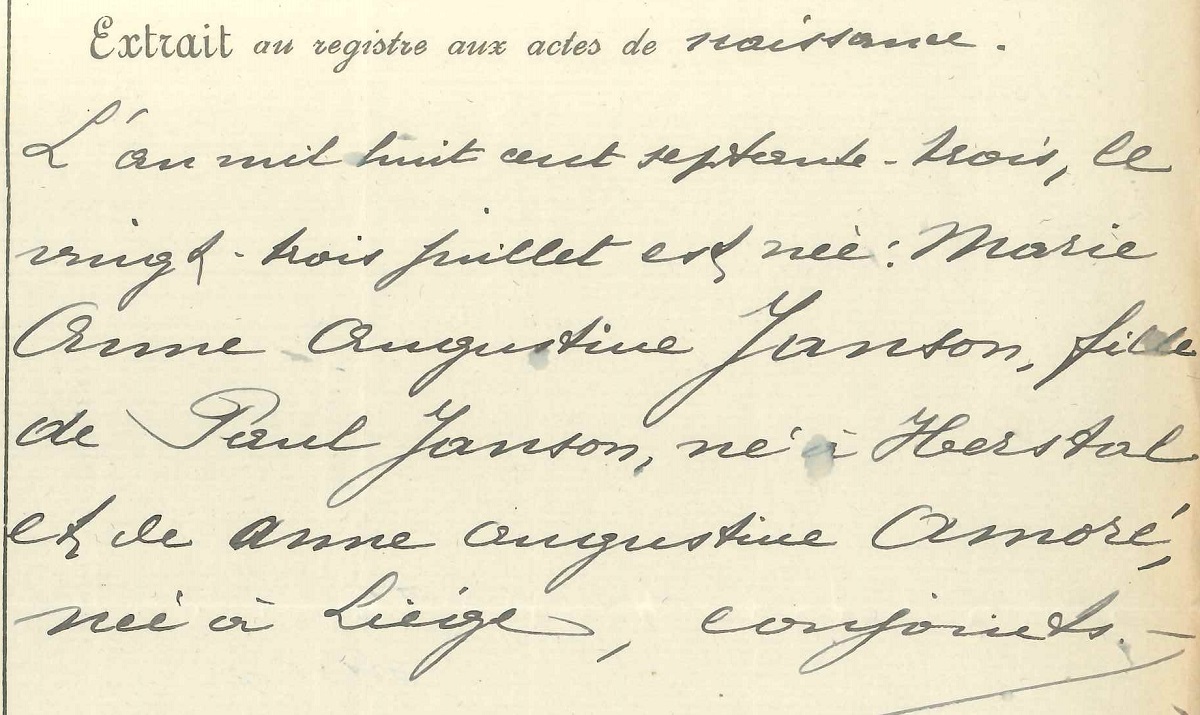 Extrait au registre aux actes de naissance.
L'an mil huit cent septante-trois, le
vingt-trois juillet est née: Marie
Anne Augustine Janson, fille
de Paul Janson, né à Herstal
et de anne augustine Amoré,
née à Liége, conjoints.